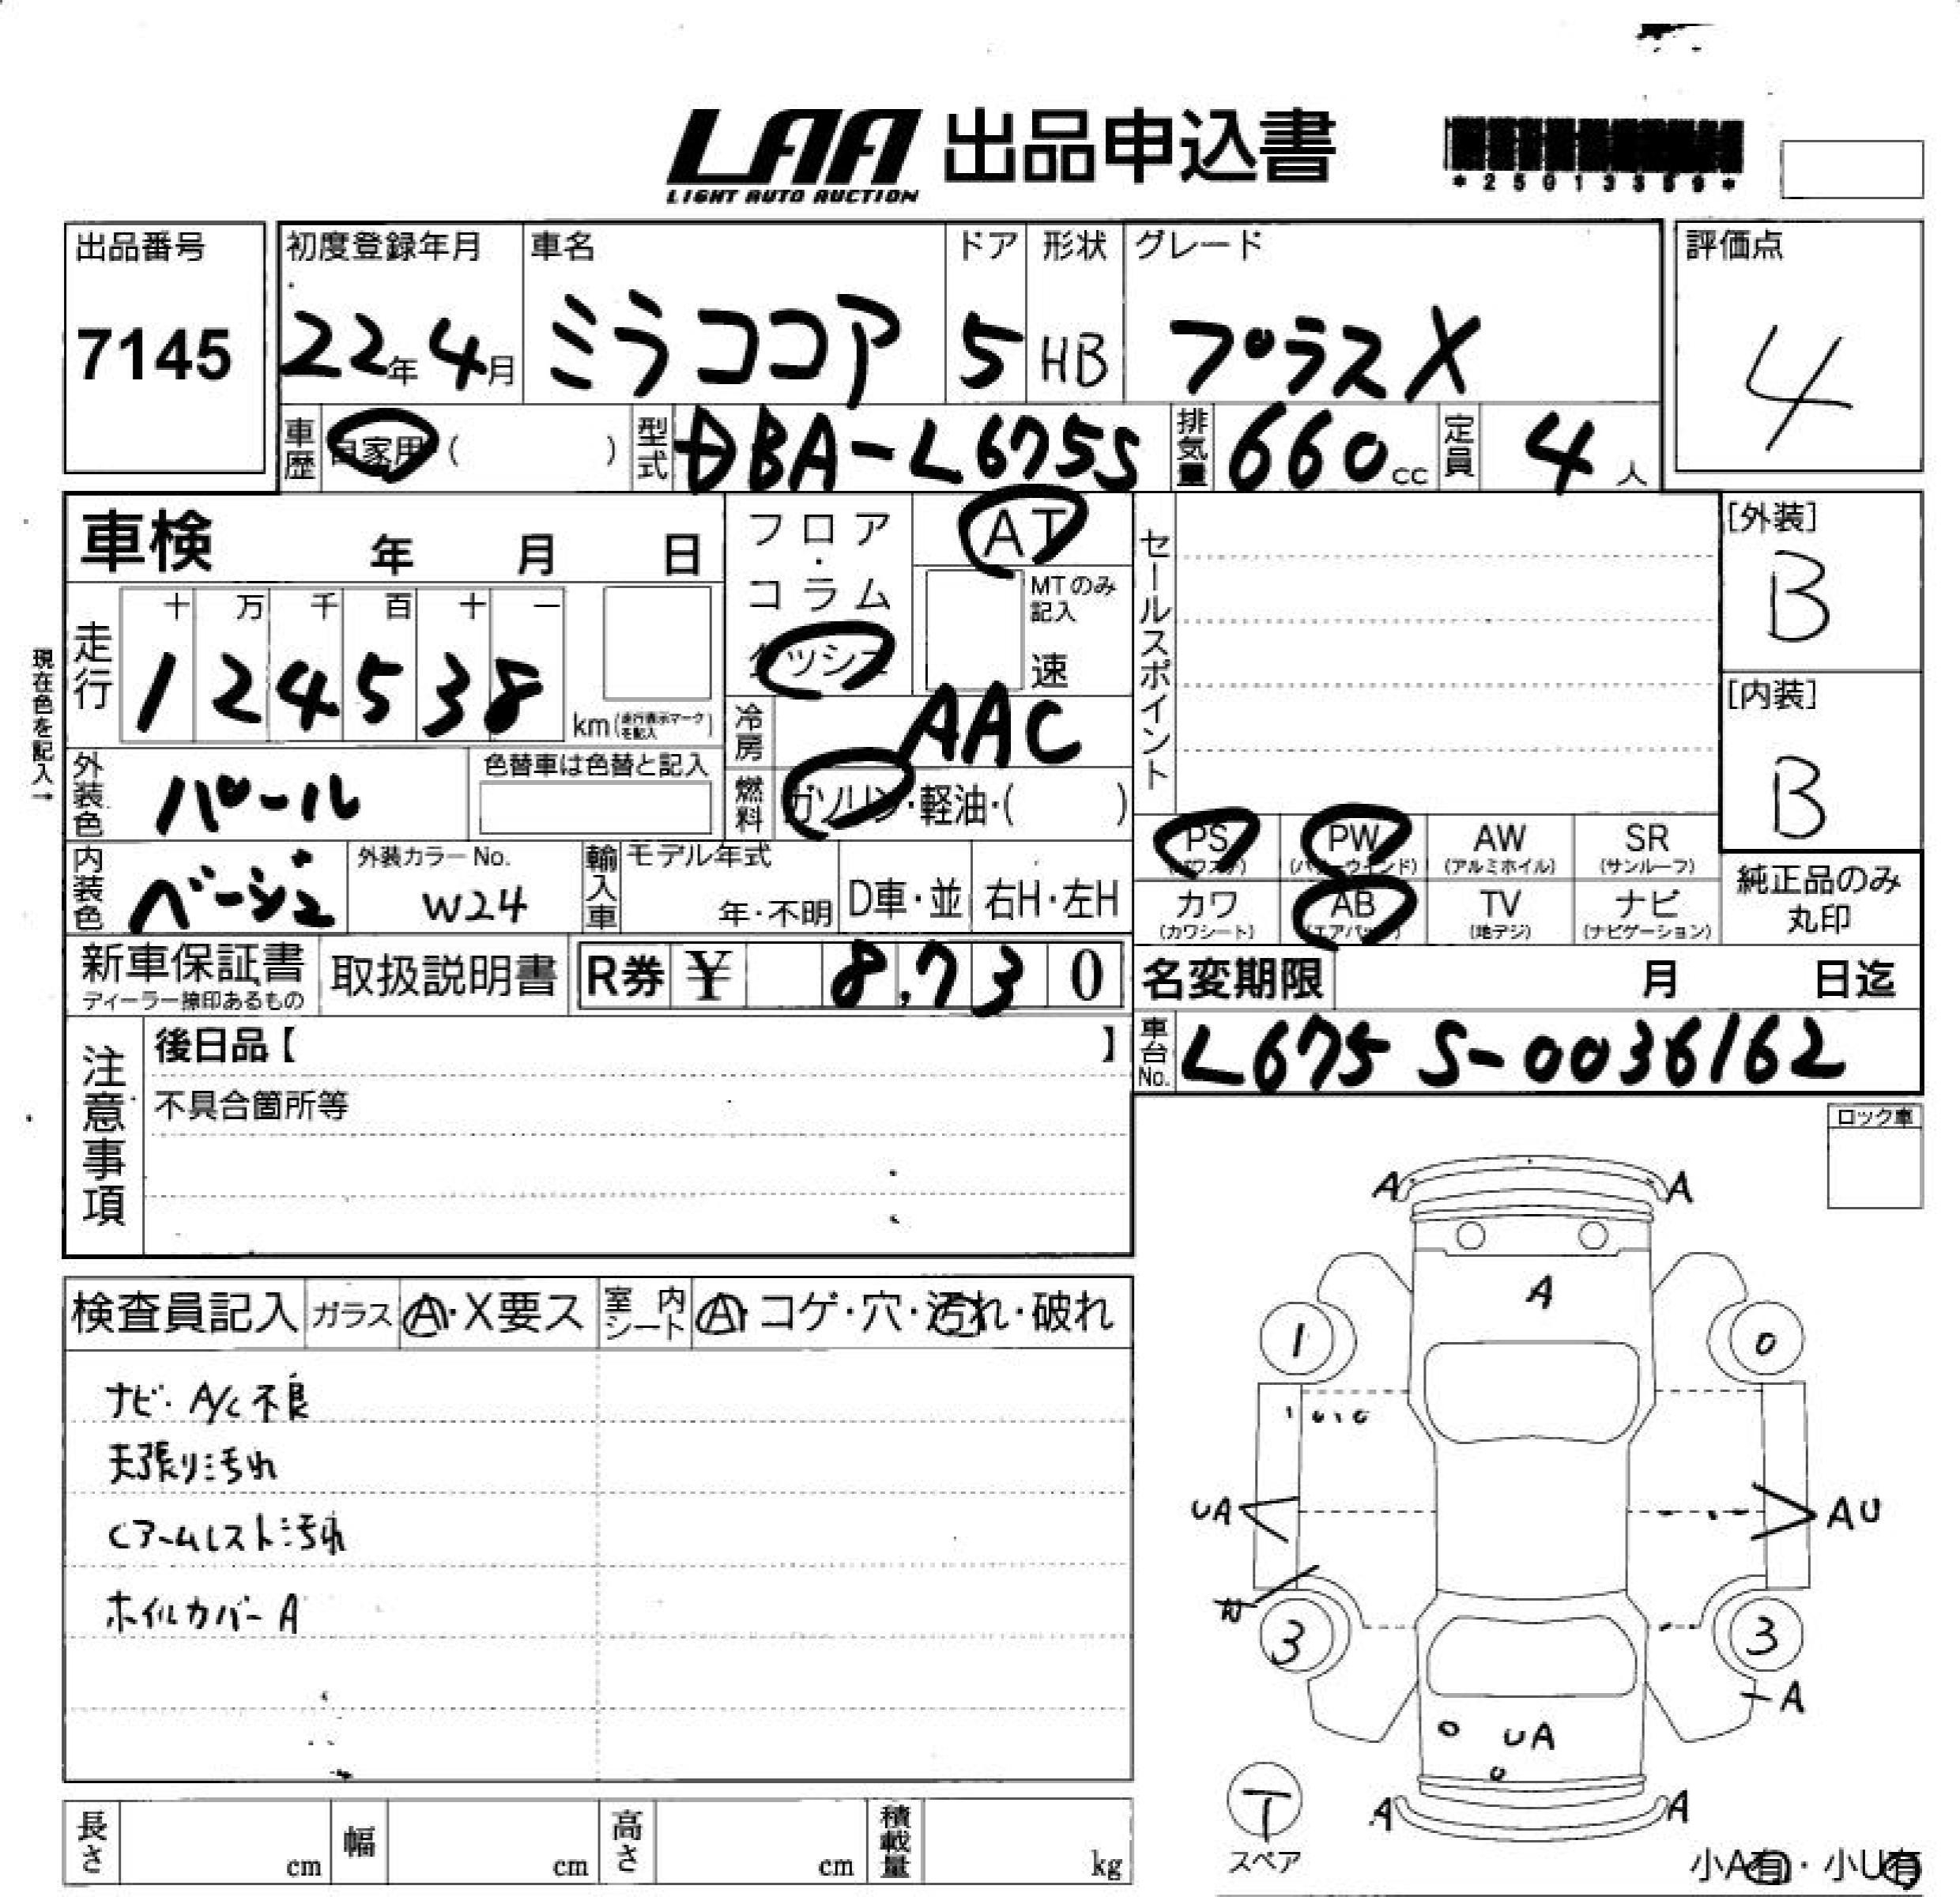 LAA 出品申込書
LIGHT AUTO AUCTION
出品番号
7145
初度登録年月
22年4月
車名
ミラココア
ドア
5
形状
HB
グレード
プラスX
評価点
4
車歴 自家用 ( )
型式 DBA-L675S
排気量 660cc
定員 4人
車検 年 月 日
フロア・コラム
ダッシュ
AT
MTのみ記入
速
セールスポイント
[外装]
B
[内装]
B
現在色を記入→
走行
十 万 千 百 十 一
1 2 4 5 3 8
km (走行表示マークを記入)
冷房 AAC
外装色 パール
色替車は色替と記入
燃料 ガソリン・軽油・( )
PS (パワステ)
PW (パワーウインド)
AW (アルミホイル)
SR (サンルーフ)
カワ (カワシート)
AB (エアバッグ)
TV (地デジ)
ナビ (ナビゲーション)
純正品のみ丸印
内装色 ベージュ
外装カラーNo.
W24
輸入車
モデル年式
年・不明
D車・並
右H・左H
新車保証書
ディーラー捺印あるもの
取扱説明書
R券 ¥ 8,730
名変期限 月 日迄
車台No. L675S-0036162
注意事項
後日品【 】
不具合箇所等
ロック車
検査員記入
ガラス A・X要ス
室内シート A・コゲ・穴・汚れ・破れ
ナビ・A/C不良
天張り汚れ
Cアームレスト汚れ
ホイルカバーA
A A
A
1 0
UA AU
3 3
A
UA
A A
T
スペア
小A有・小U有
長さ cm
幅 cm
高さ cm
積載量 kg